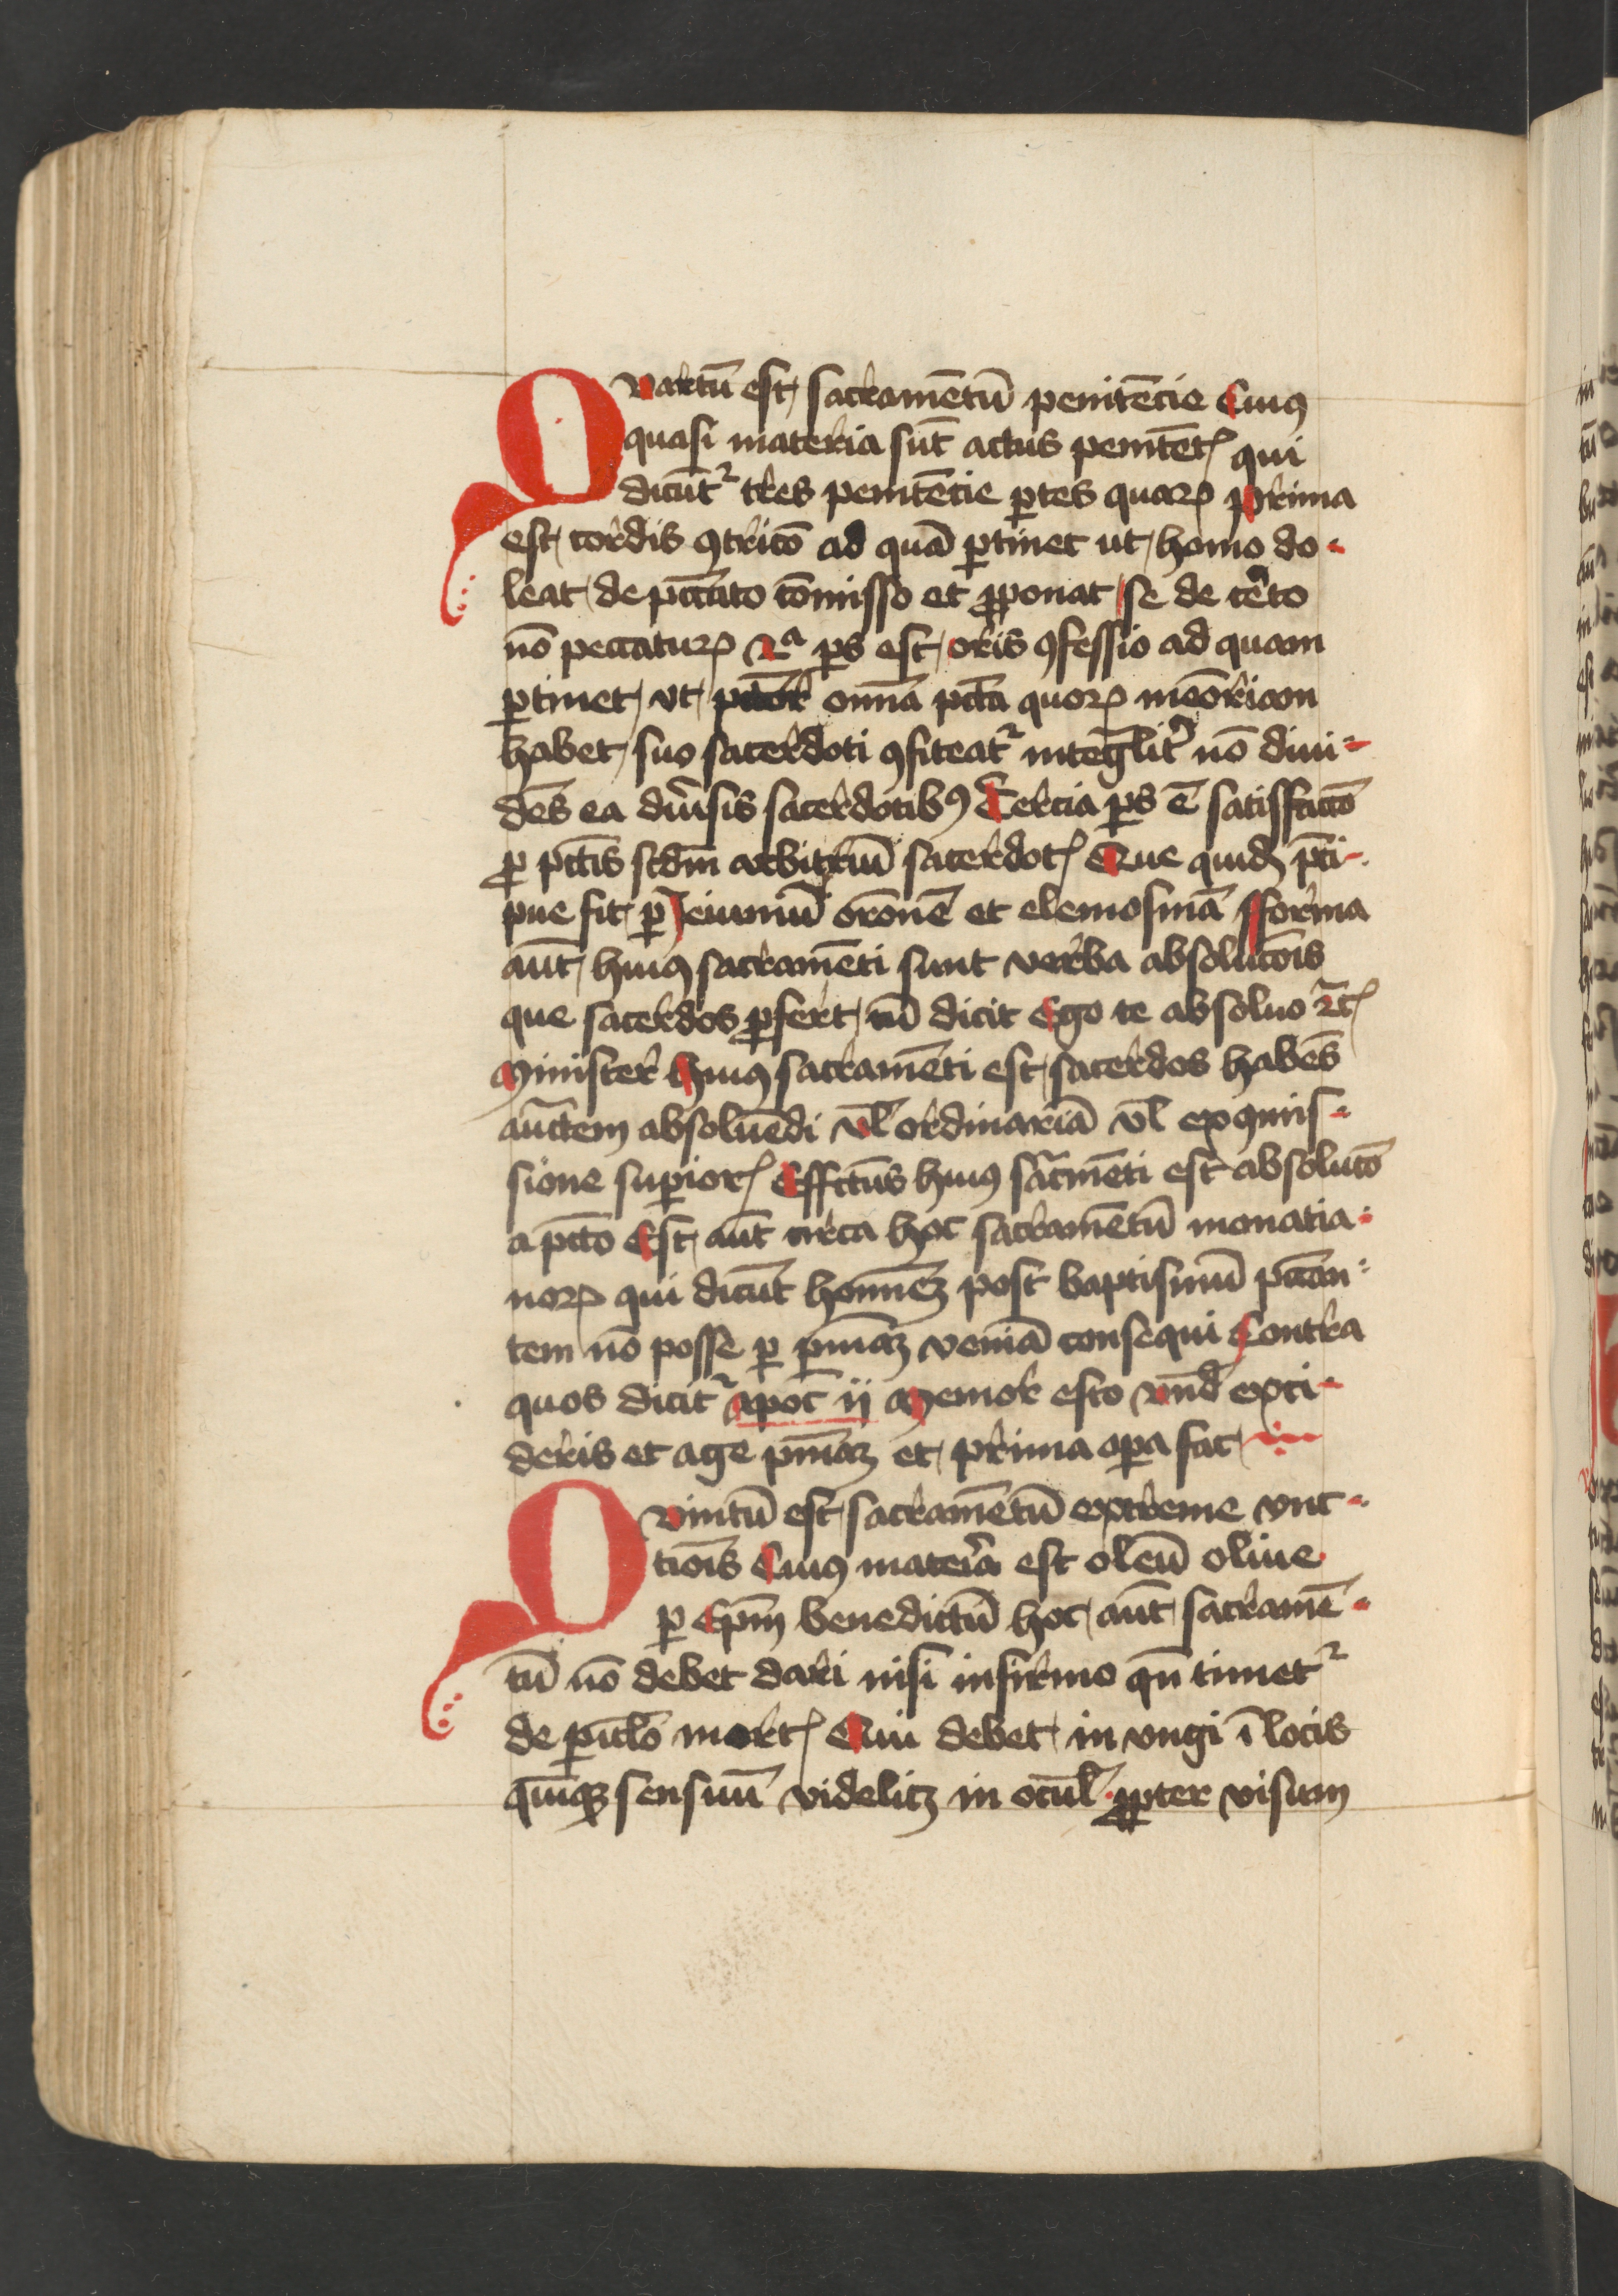 Quartū est sacramētū penitēcie Cuiꝰ
quasi materia sūt actus penitētꝭ qui
dicūtᷣ tres penitēcie ꝑtes quaꝝ prima
est cordis ꝯtricō ad quā ꝑtinet ut homo do-
leat de pccato cōmisso et ꝓponat se de ceto
nō peccatuꝝ 2ᵃ ps est oris ꝯfessio ad quam
ꝑtinet vt pctōr omnia pctā quoꝝ meōriam
habet suo sacerdoti ꝯfiteatᷣ integlit nō diui-
dēs ea diūsis sacerdotibꝰ Tercia ps ē satisfactō
ꝓ pctīs scdm arbitriū sacerdotꝭ Que quidē pci-
pue fit ꝑ Jeiuniū orōnē et elemosinā fforma
aūt huiꝰ sacramēti sunt verba absolucōis
que sacerdos ꝓfert cū dicit Ego te absoluo ⁊cꝭ
Minister huiꝰ sacramēti est sacerdos habēs
auctem absoluēdi vl̄ ordinariā vl̄ ex ꝯmis-
sione supiorꝭ Effctūs huiꝰ sacmēti est absolutō
a pctō Est aūt circa hoc sacramētū monatia-
noꝝ qui dicūt hominēꝫ post baptismū pccan-
tem nō posse ꝑ pniāꝫ veniā consequi Contra
quos dicitᷣ apoc̄ ij Memor esto vnd̄ exci-
deris et age pniāꝫ et prima opa fac
Quintū est sacramētū extreme vnc-
tiois Cuiꝰ materia est oleū oliue
ꝑ Epm̄ benedictū hoc aūt sacramē-
tū nō debet dari nisi infirmo qn̄ timetᷣ
de piclō mortꝭ Cui debet in vngi ī locis
quīqꝫ sensuū videlicꝫ in ocul̄ ꝓpter visum